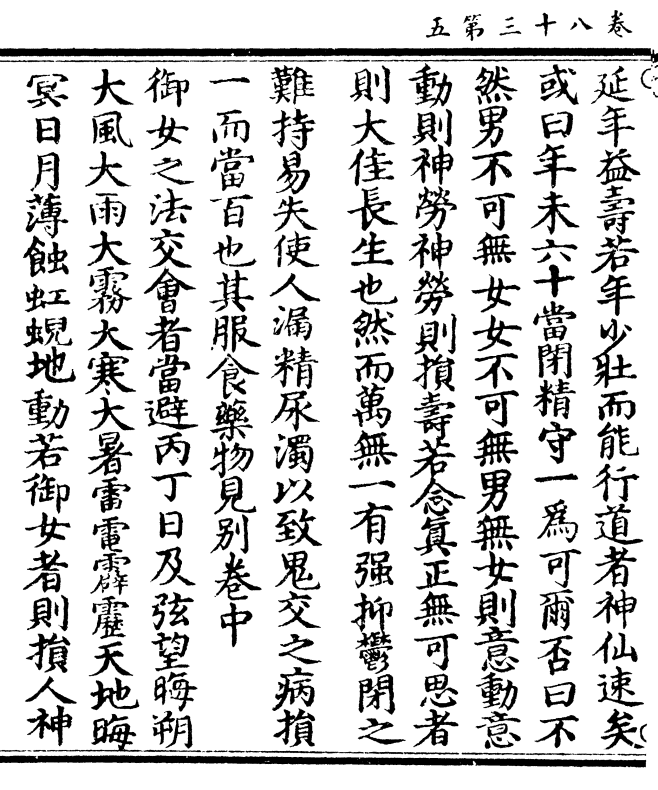 卷八十三第五
延年益壽若年少壯而能行道者神仙速矣
或曰年未六十當閉精守一爲可爾否曰不
然男不可無女女不可無男無女則意動意
動則神勞神勞則損壽若念眞正無可思者
則大佳長生也然而萬無一有强抑鬱閉之
難持易失使人漏精尿濁以致鬼交之病損
一而當百也其服食藥物見别卷中
御女之法交會者當避丙丁日及弦望晦朔
大風大雨大霧大寒大暑雷電霹靂天地晦
冥日月薄蝕虹蜺地動若御女者則損人神